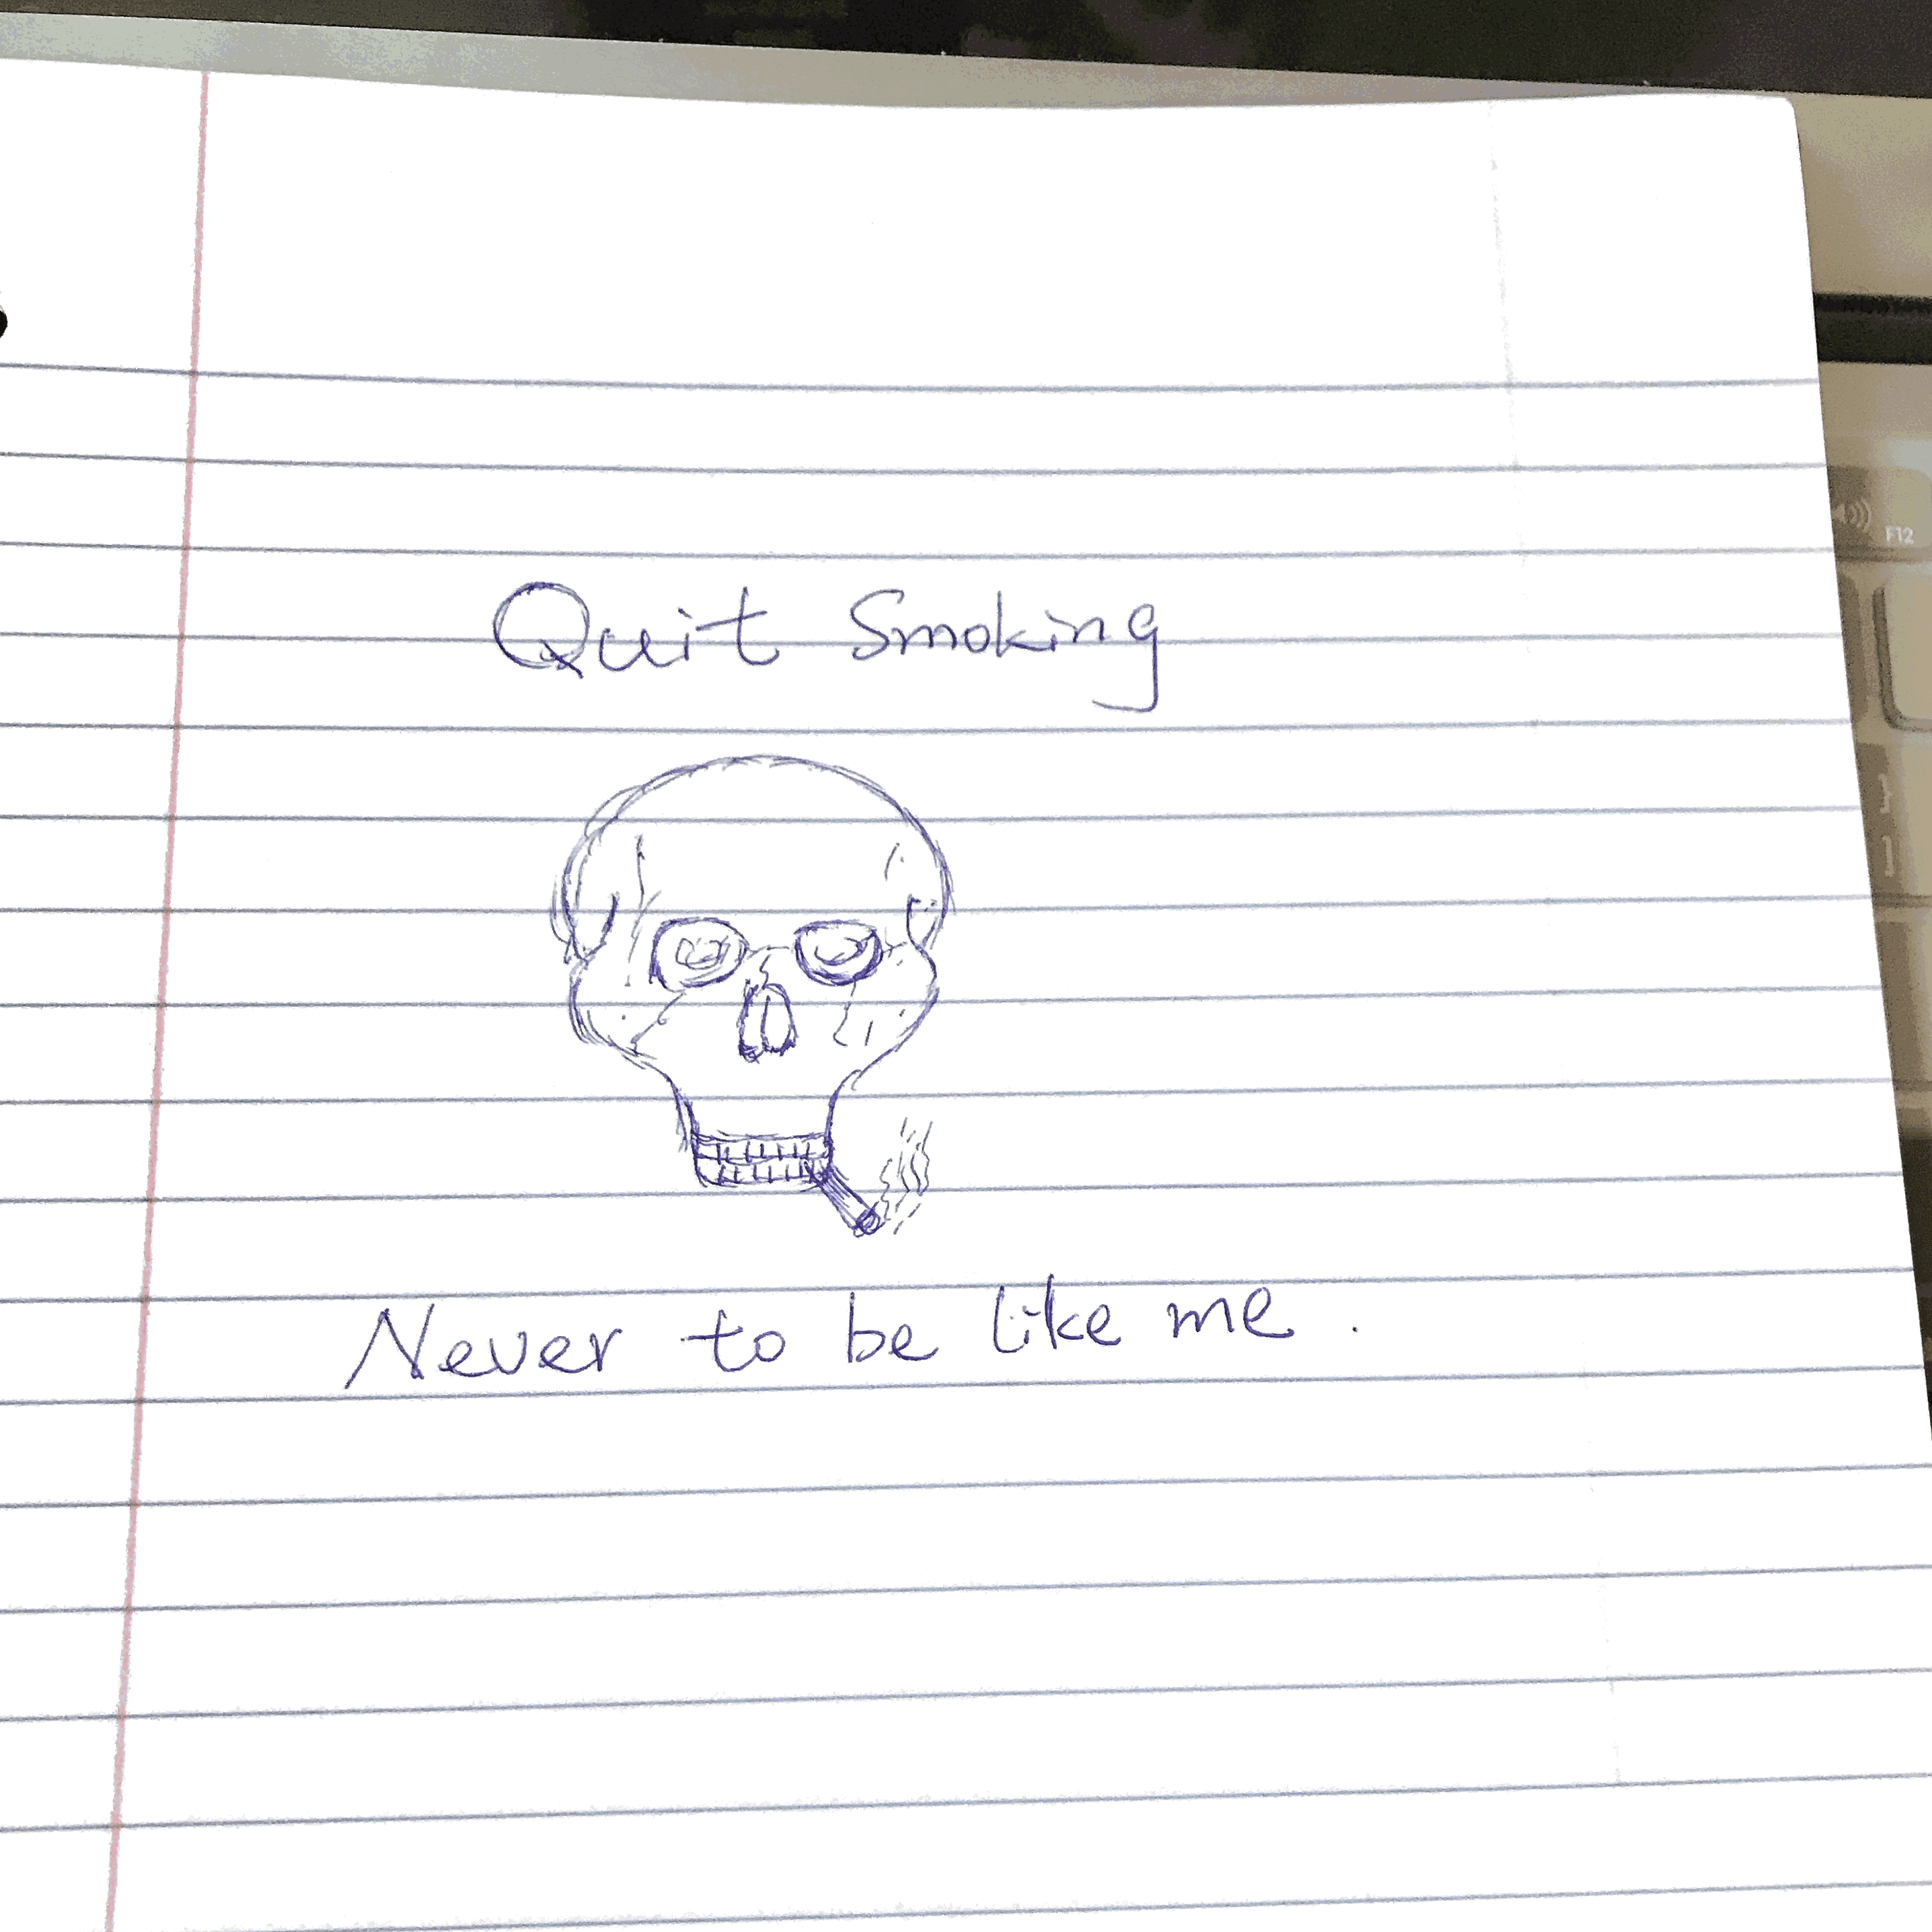 Quit Smoking
Never to be like me.
F12